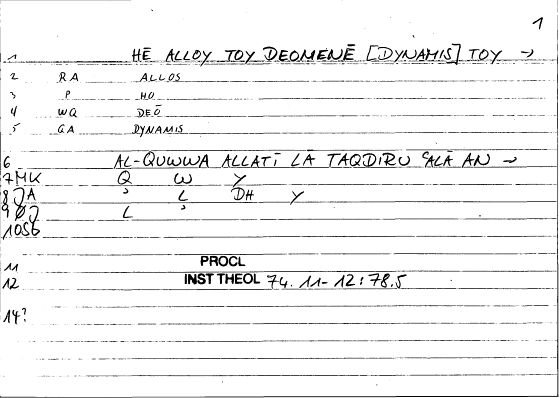 1
1 HĒ ALLOY TOY DEOMENĒ [DYNAMIS] TOY →
2 RA ALLOS
3 P HO
4 WQ DEŌ
5 GA DYNAMIS
6 AL-QUWWA ALLATĪ LĀ TAQDIRU ʿALĀ AN →
7 MK Q W Y
8 JA ʾ L DH Y
9 ØJ L ʾ
10 SG
11 PROCL
12 INST THEOL 74.11-12:78.5
14?